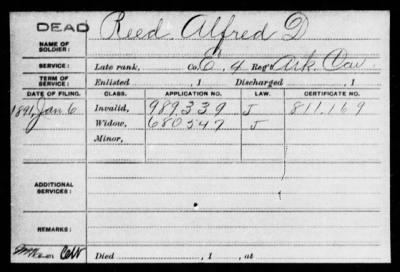 DEAD Reed Alfred D
NAME OF SOLDIER:
SERVICE: Late rank, Co. E, 4 Reg't Ark. Cav.
TERM OF SERVICE: Enlisted , 1 Discharged , 1
DATE OF FILING. CLASS. APPLICATION NO. LAW. CERTIFICATE NO.
1891, Jan 6 Invalid, 989.339 J 811.169
Widow, 680547 J
Minor,
ADDITIONAL SERVICES:
REMARKS:
Died , 1 , at